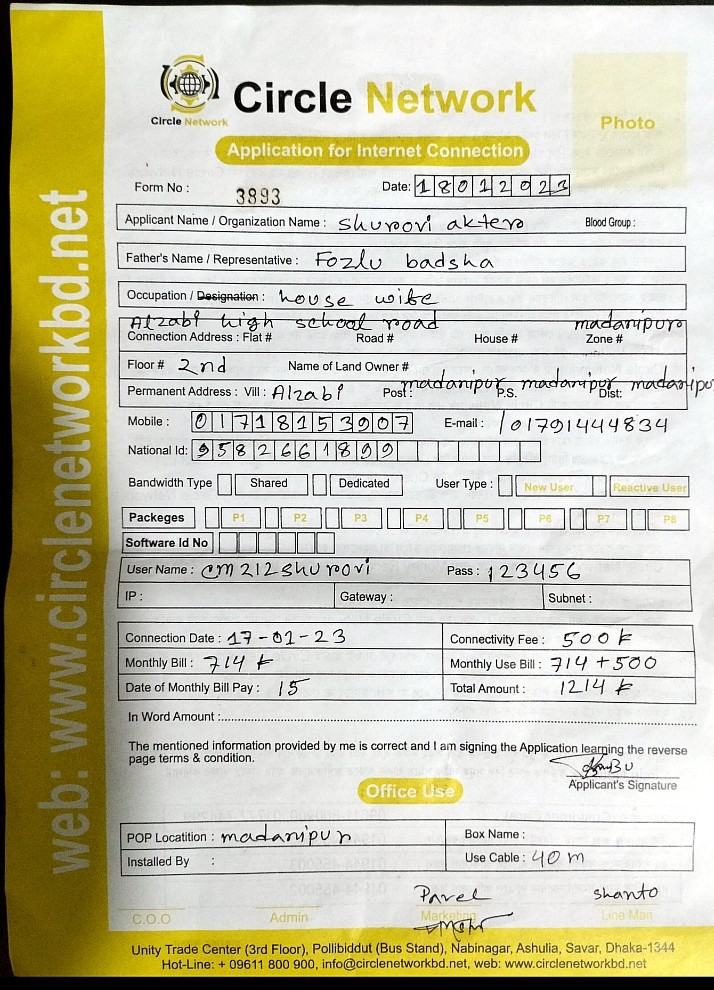 Circle Network
Circle Network
Photo
Application for Internet Connection
Form No : 3893 Date: 18012023
Applicant Name / Organization Name : Shurovi akter Blood Group :
Father's Name / Representative : Fozlu badsha
Occupation / Designation : house wife
Alzabi high school road madanipur
Connection Address : Flat # Road # House # Zone #
Floor # 2nd Name of Land Owner #
Permanent Address : Vill : Alzabi Post : madanipur P.S. madanipur Dist: madanipur
Mobile : 01718153907 E-mail : /01791444834
National Id: 9582661899
Bandwidth Type Shared Dedicated User Type : New User Reactive User
Packeges P1 P2 P3 P4 P5 P6 P7 P8
Software Id No
User Name : cm212shurovi Pass : 123456
IP : Gateway : Subnet :
Connection Date : 17-01-23 Connectivity Fee : 500 ৳
Monthly Bill : 714 ৳ Monthly Use Bill : 714 + 500
Date of Monthly Bill Pay : 15 Total Amount : 1214 ৳
In Word Amount :
The mentioned information provided by me is correct and I am signing the Application learning the reverse
page terms & condition.
Applicant's Signature
Office Use
POP Locatition : madanipur Box Name :
Installed By : Use Cable : 40 m
Pavel shanto
C.O.O Admin Marketing Line Man
Unity Trade Center (3rd Floor), Pollibiddut (Bus Stand), Nabinagar, Ashulia, Savar, Dhaka-1344
Hot-Line: + 09611 800 900, info@circlenetworkbd.net, web: www.circlenetworkbd.net
web: www.circlenetworkbd.net